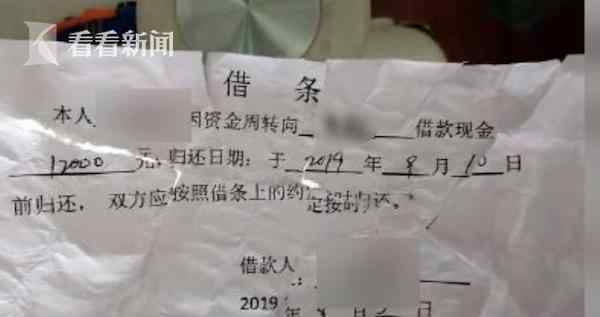 看看新闻
借 条
本人 因资金周转向 借款现金
12000 元,归还日期:于 2019 年 9 月 10 日
前归还。双方应按照借条上的约定按时归还。
借款人:
2019 年 月 日